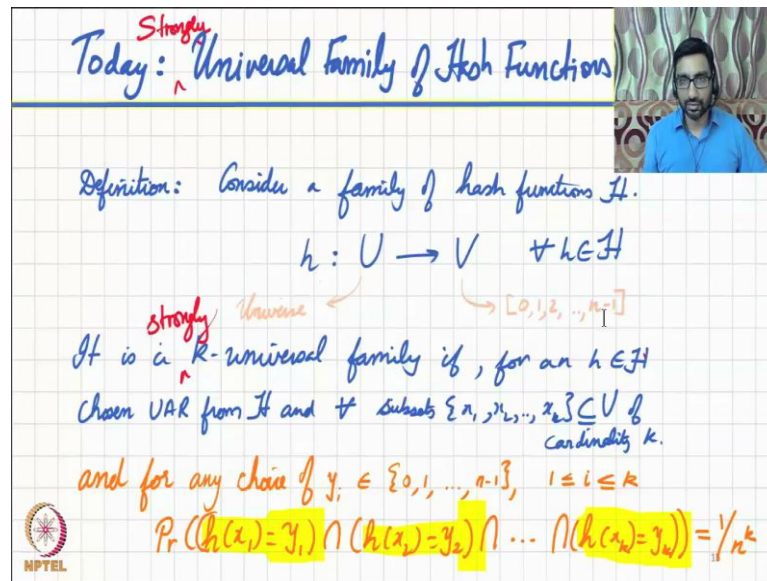 Strongly
Today: ^ Universal Family of Hash Functions
Definition: Consider a family of hash functions H.
h : U → V ∀ h ∈ H
Universe [0,1,2, .., n-1]
strongly
It is a ^ k-universal family if, for an h ∈ H
chosen UAR from H and ∀ subsets {x1, x2, .., xk} ⊆ U of
cardinality k.
and for any choice of yi ∈ {0, 1, ..., n-1}, 1 ≤ i ≤ k
Pr((h(x1) = y1) ∩ (h(x2) = y2) ∩ ... ∩ (h(xk) = yk)) = 1/n^k
NPTEL